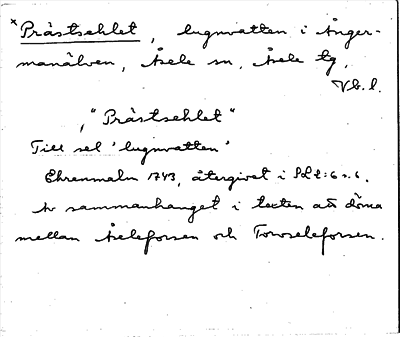 *Prästsehlet, lugnvatten i Ånger-
manälven, Åsele sn, Åsele tg,
Vb. l.
"Prästsehlet"
Till sel 'lugnvatten'
Ehrenmalm 1743, återgivet i
Av sammanhanget i texten att döma
mellan Åseleforsen och Torvseleforsen.